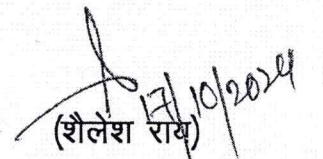 17/10/2024
(शैलेश राय)